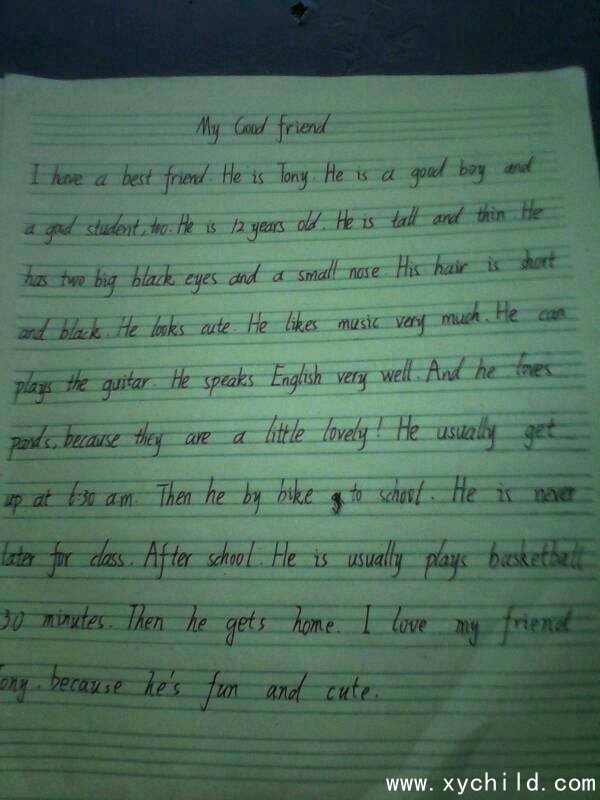 My Good friend
I have a best friend. He is Tony. He is a good boy and
a good student, too. He is 12 years old. He is tall and thin He
has two big black eyes and a small nose His hair is short
and black. He looks cute. He likes music very much. He can
plays the guitar. He speaks English very well. And he loves
pands, because they are a little lovely! He usually get
up at 6:30 a.m. Then he by bike to school. He is never
later for class. After school. He is usually plays basketball
30 minutes. Then he gets home. I love my friend
Tony. because he's fun and cute.
www.xychild.com